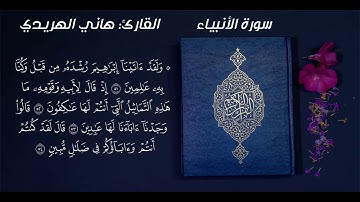 سورة الأنبياء
القارئ: هاني الهريدي
۞ وَلَقَدْ ءَاتَيْنَآ إِبْرَٰهِيمَ رُشْدَهُۥ مِن قَبْلُ وَكُنَّا
بِهِۦ عَٰلِمِينَ ۝٥١ إِذْ قَالَ لِأَبِيهِ وَقَوْمِهِۦ مَا
هَٰذِهِ ٱلتَّمَاثِيلُ ٱلَّتِىٓ أَنتُمْ لَهَا عَٰكِفُونَ ۝٥٢ قَالُوا۟
وَجَدْنَآ ءَابَآءَنَا لَهَا عَٰبِدِينَ ۝٥٣ قَالَ لَقَدْ كُنتُمْ
أَنتُمْ وَءَابَآؤُكُمْ فِى ضَلَٰلٍ مُّبِينٍ ۝٥٤